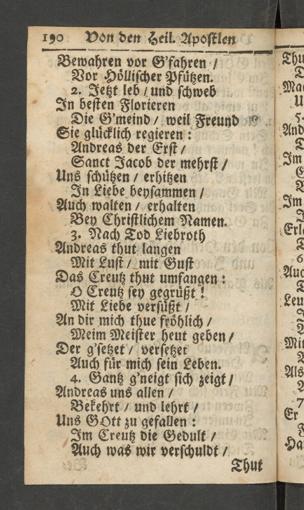 190 Von den Heil. Apostlen
Bewahren vor G'fahren /
Vor Höllischer Pfützen.
2. Jetzt leb / und schweb
In besten Florieren
Die G'meind / weil Freund
Sie glücklich regieren :
Andreas der Erst /
Sanct Jacob der mehrst /
Uns schützen / erhitzen
In Liebe beysammen /
Auch walten / erhalten
Bey Christlichem Namen.
3. Nach Tod Liebroth
Andreas thut langen
Mit Lust / mit Gust
Das Creutz thut umfangen :
O Creutz sey gegrüßt !
Mit Liebe versüßt /
An dir mich thue fröhlich /
Meim Meister heut geben /
Der g'setzet / versetzet
Auch für mich sein Leben.
4. Gantz g'neigt sich zeigt /
Andreas uns allen /
Bekehrt / und lehrt /
Uns GOtt zu gefallen :
Im Creutz die Gedult /
Auch was wir verschuldt /
Thut